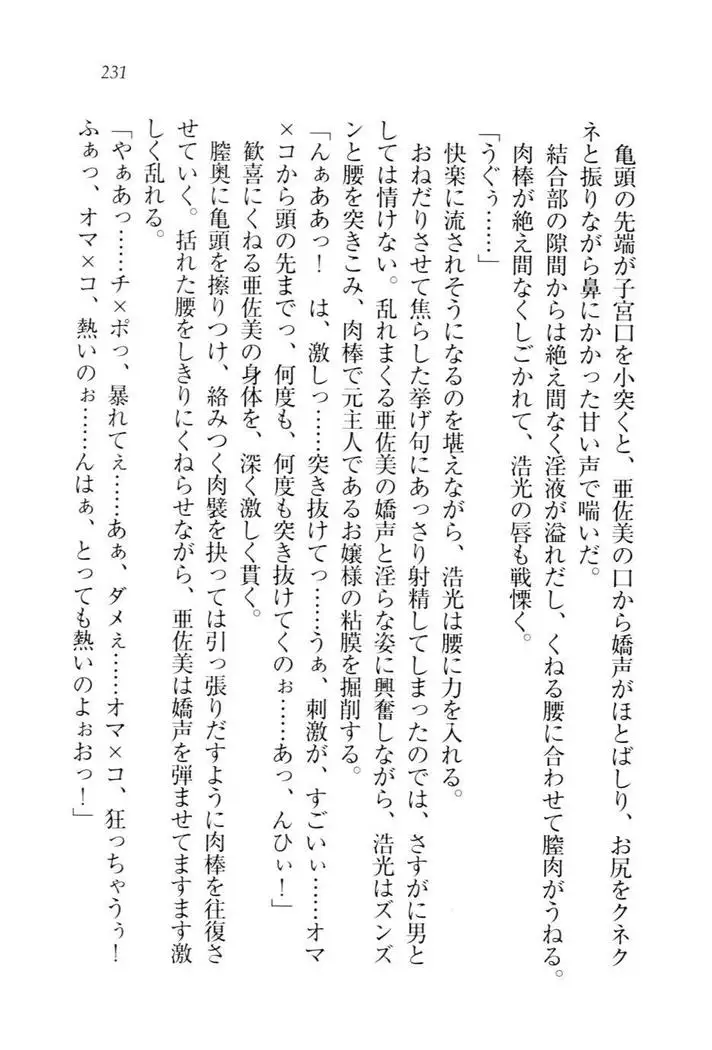 231
亀頭の先端が子宮口を小突くと、亜佐美の口から嬌声がほとばしり、お尻をクネク
ネと振りながら鼻にかかった甘い声で喘いだ。
結合部の隙間からは絶え間なく淫液が溢れだし、くねる腰に合わせて膣肉がうねる。
肉棒が絶え間なくしごかれて、浩光の唇も戦慄く。
「うぐぅ……」
快楽に流されそうになるのを堪えながら、浩光は腰に力を入れる。
おねだりさせて焦らした挙げ句にあっさり射精してしまったのでは、さすがに男と
しては情けない。乱れまくる亜佐美の嬌声と淫らな姿に興奮しながら、浩光はズンズ
ンと腰を突きこみ、肉棒で元主人であるお嬢様の粘膜を掘削する。
「んぁああっ！　は、激しっ……突き抜けてっ……うぁ、刺激が、すごいぃ……オマ
×コから頭の先までっ、何度も、何度も突き抜けてくのぉ……あっ、んひぃ！」
歓喜にくねる亜佐美の身体を、深く激しく貫く。
膣奥に亀頭を擦りつけ、絡みつく肉襞を抉っては引っ張りだすように肉棒を往復さ
せていく。括れた腰をしきりにくねらせながら、亜佐美は嬌声を弾ませてますます激
しく乱れる。
「やぁあっ……チ×ポっ、暴れてぇ……あぁ、ダメぇ……オマ×コ、狂っちゃうぅ！
ふぁっ、オマ×コ、熱いのぉ……んはぁ、とっても熱いのよぉおっ！」